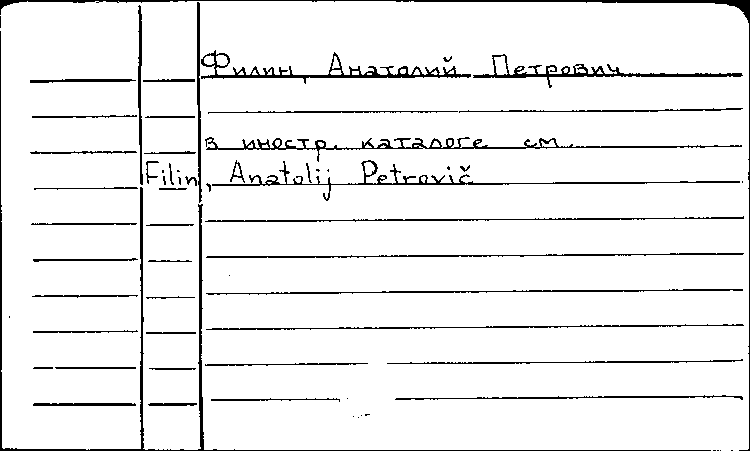 Филин, Анатолий Петрович
в иностр. каталоге см.
Filin, Anatolij Petrovič